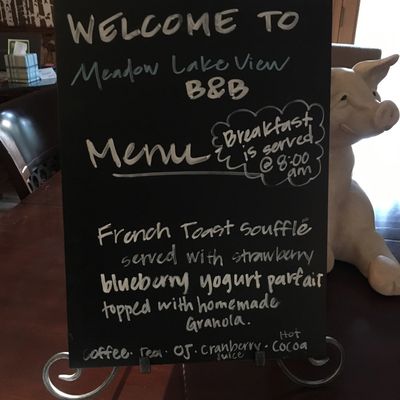 WELCOME TO
Meadow Lake View
B&B
Menu
Breakfast
is served
@ 8:00
am
French Toast Soufflé
served with strawberry
blueberry yogurt parfait
topped with homemade
Granola.
Coffee · Tea · OJ · Cranberry Juice · Hot Cocoa